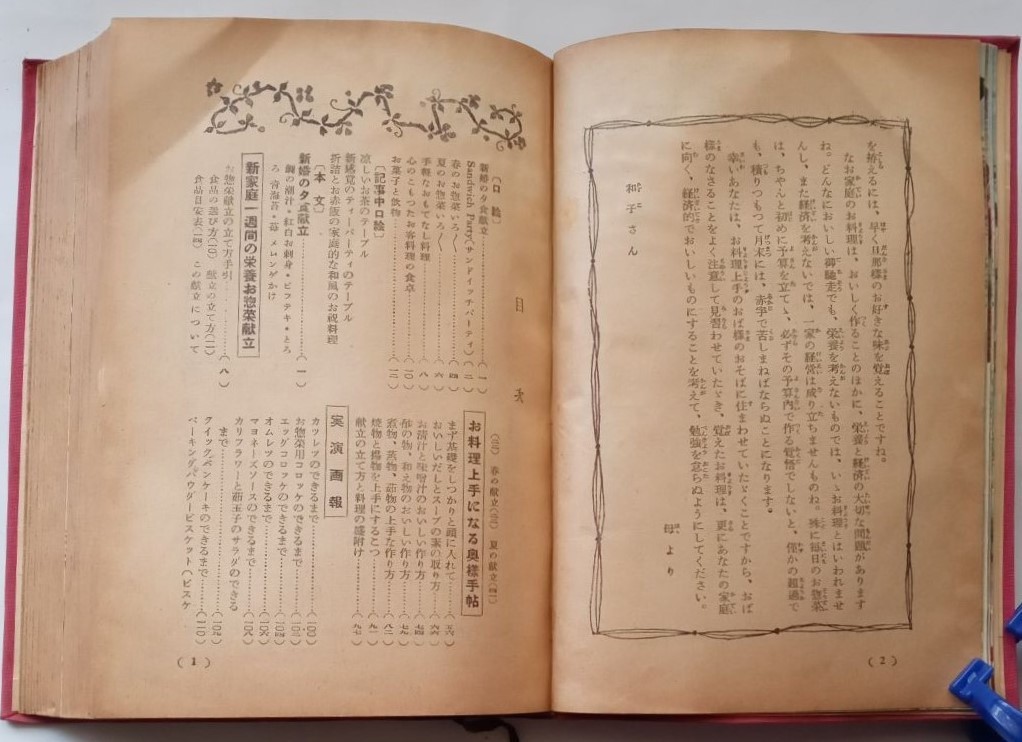 を拵えるには、早く旦那様のお好きな味を覚えることですね。
なお家庭のお料理は、おいしく作ることのほかに、栄養と経済の大切な問題があります
ね。どんなにおいしい御馳走でも、栄養を考えないものでは、いゝお料理とはいわれませ
んし、また経済を考えないでは、一家の経営は成り立ちませんものね。殊に毎日のお惣菜
は、ちやんと初めに予算を立てゝ、必ずその予算内で作る覚悟でしないと、僅かの超過で
も、積りつもつて月末には、赤字で苦しまねばならぬことになります。
幸いあなたは、お料理上手のおば様のおそばに住まわせていたゞくことですから、おば
様のなさることをよく注意して見習わせていたゞき、覚えたお料理は、更にあなたの家庭
に向く、経済的でおいしいものにすることを考えて、勉強を怠らぬようにしてください。
母より
和子さん
(2)
目次
〔口絵〕
新婚の夕食献立……(一)
Sandwich Party(サンドイッチパーティ)(二)
春のお惣菜いろ〱……(四)
夏のお惣菜いろ〱……(六)
手軽なおもてなし料理……(八)
心のこもつたお客料理の食卓……(一〇)
お菓子と飲物……(一二)
〔記事中口絵〕
涼しいお茶のテーブル
新感覚のティーパーティのテーブル
折詰とお赤飯の家庭的な和風のお祝料理
〔本文〕
新婚の夕食献立……(一)
鯛の潮汁・紅白お刺身・ビフテキ・とろ
ろ 青海苔・苺 メレンゲかけ
新家庭一週間の栄養お惣菜献立
お惣菜献立の立て方手引……(八)
食品の選び方(一〇) 献立の立て方(一二)
食品目安表(一四) この献立について
春の献立 夏の献立
お料理上手になる奥様手帖
まず基礎をしつかりと頭に入れて……(五六)
おいしいだしとスープの素の取り方……(六六)
お清汁と味噌汁のおいしい作り方……(七四)
酢の物、和え物のおいしい作り方……(七九)
煮物、蒸物、茹物の上手な作り方……(八二)
焼物と揚物を上手にするこつ……(九一)
献立の立て方と料理の盛附け……(九七)
実演画報
カツレツのできるまで……(一〇〇)
お惣菜用コロッケのできるまで……(一〇二)
エッグコロッケのできるまで……(一〇四)
オムレツのできるまで……(一〇六)
マヨネーズソースのできるまで……(一〇八)
カリフラワーと茹玉子のサラダのできる
まで……(一〇九)
クイックパンケーキのできるまで……(一一〇)
ベーキングパウダービスケット(ビスケ
(1)